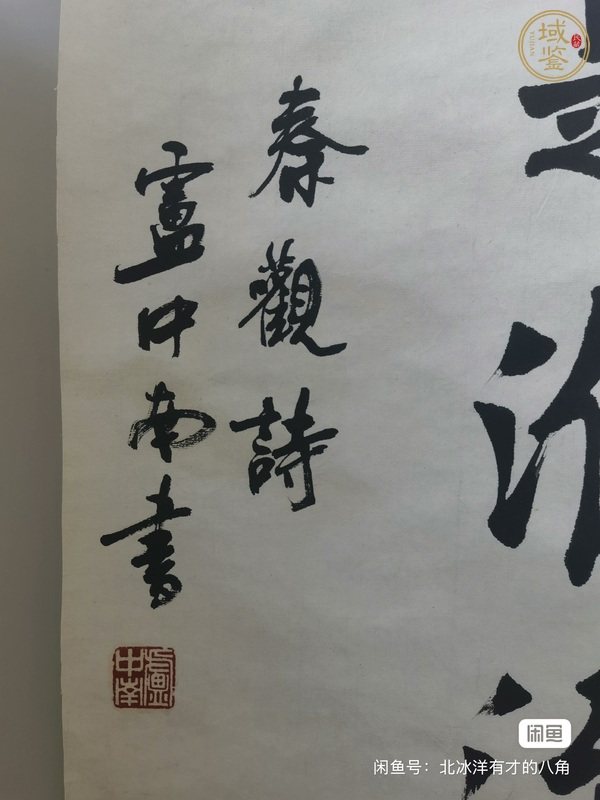 秦觀詩
盧中南書
盧中南
域鑒
闲鱼
闲鱼号：北冰洋有才的八角